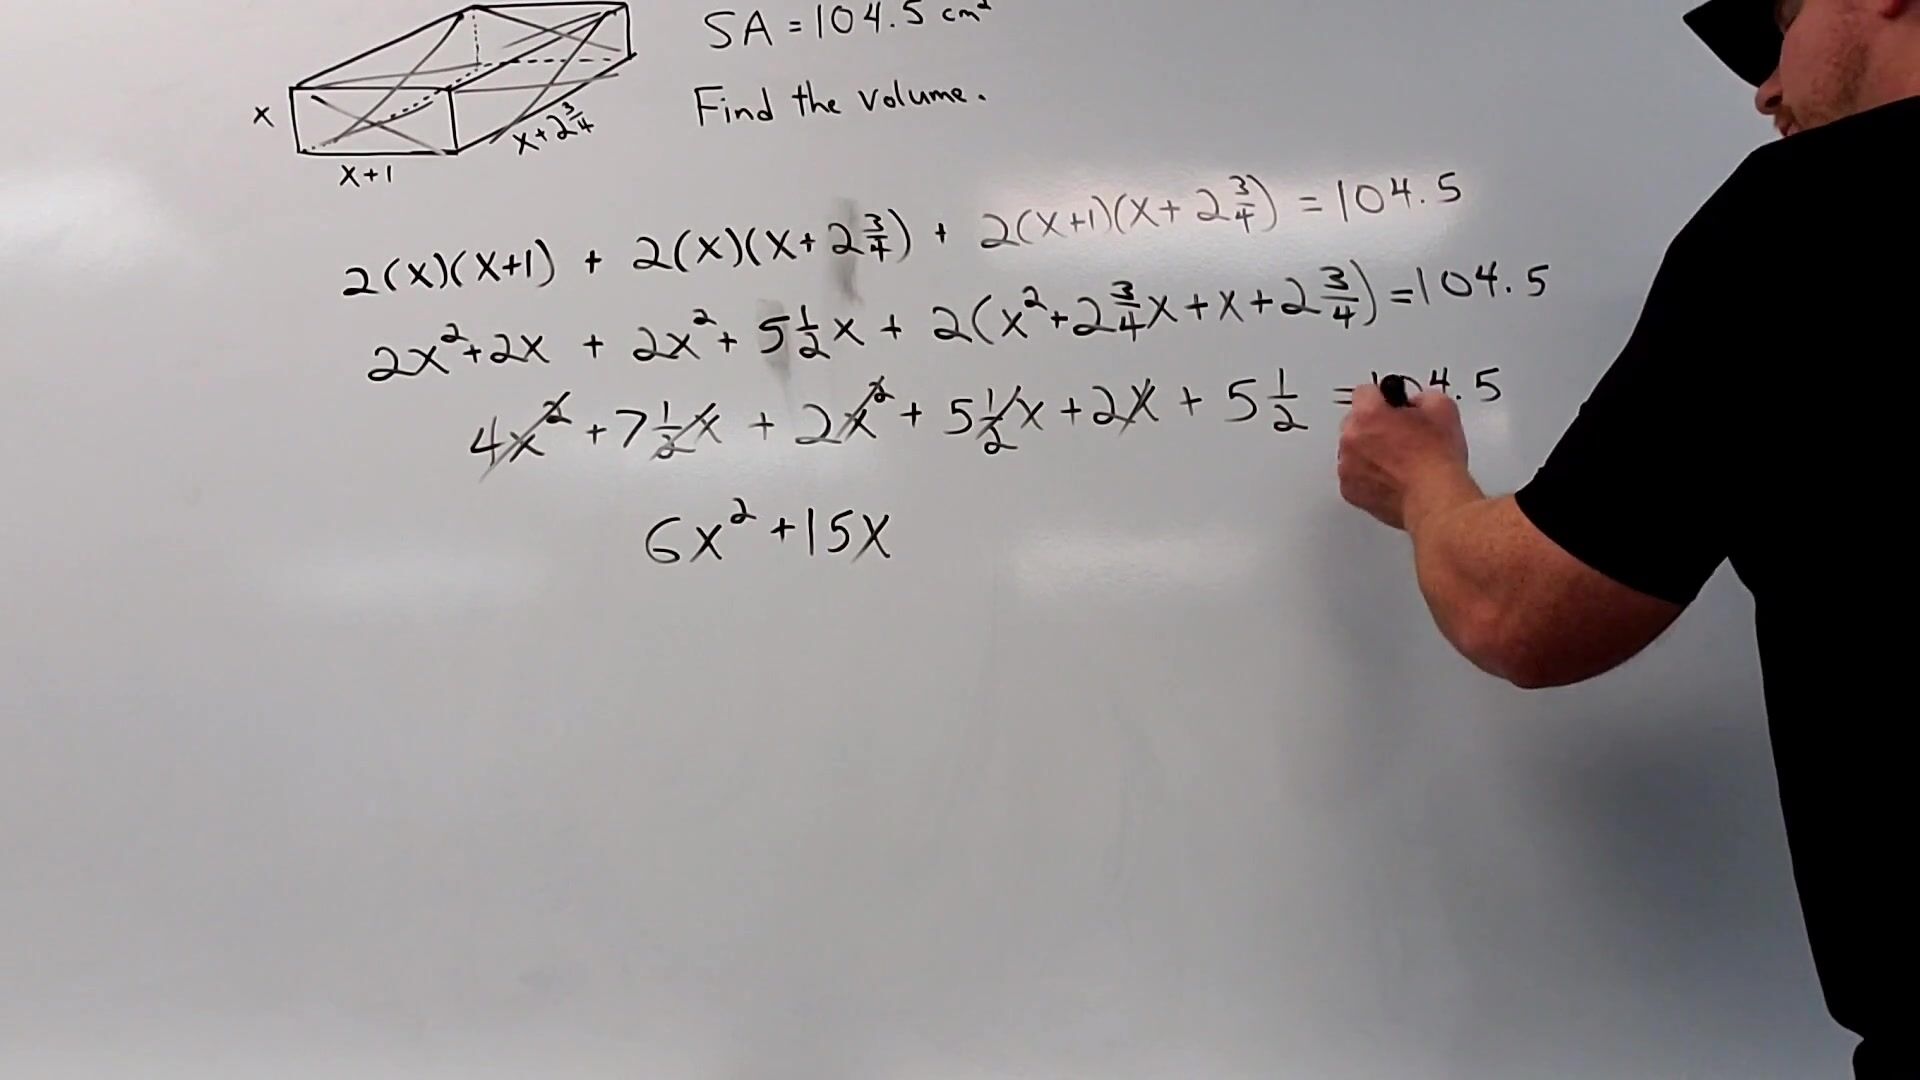 SA = 104.5 cm²
Find the volume.
x
x+1
x+2 3/4
2(x)(x+1) + 2(x)(x+2 3/4) + 2(x+1)(x+2 3/4) = 104.5
2x²+2x + 2x²+ 5 1/2 x + 2(x²+2 3/4 x+x+2 3/4) = 104.5
4x² + 7 1/2 x + 2x² + 5 1/2 x + 2x + 5 1/2 = 104.5
6x² + 15x